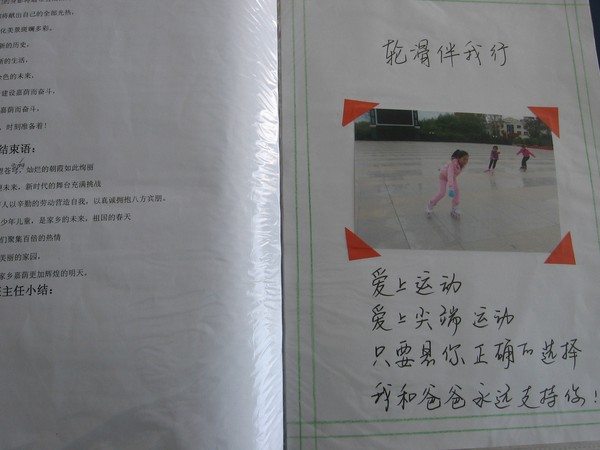 将献出自己的全部光热,
的历史,
的生活,
色的未来,
建设嘉荫而奋斗,
嘉荫而奋斗,
,时刻准备着!
结束语:
灿烂的朝霞如此绚丽
未来,新时代的舞台充满挑战
人以辛勤的劳动营造自我,以真诚拥抱八方宾朋。
少年儿童,是家乡的未来,祖国的春天
们聚集百倍的热情
美丽的家园。
家乡嘉荫更加辉煌的明天。
主任小结:
轮滑伴我行
爱上运动
爱上尖端运动
只要是你正确的选择
我和爸爸永远支持你!